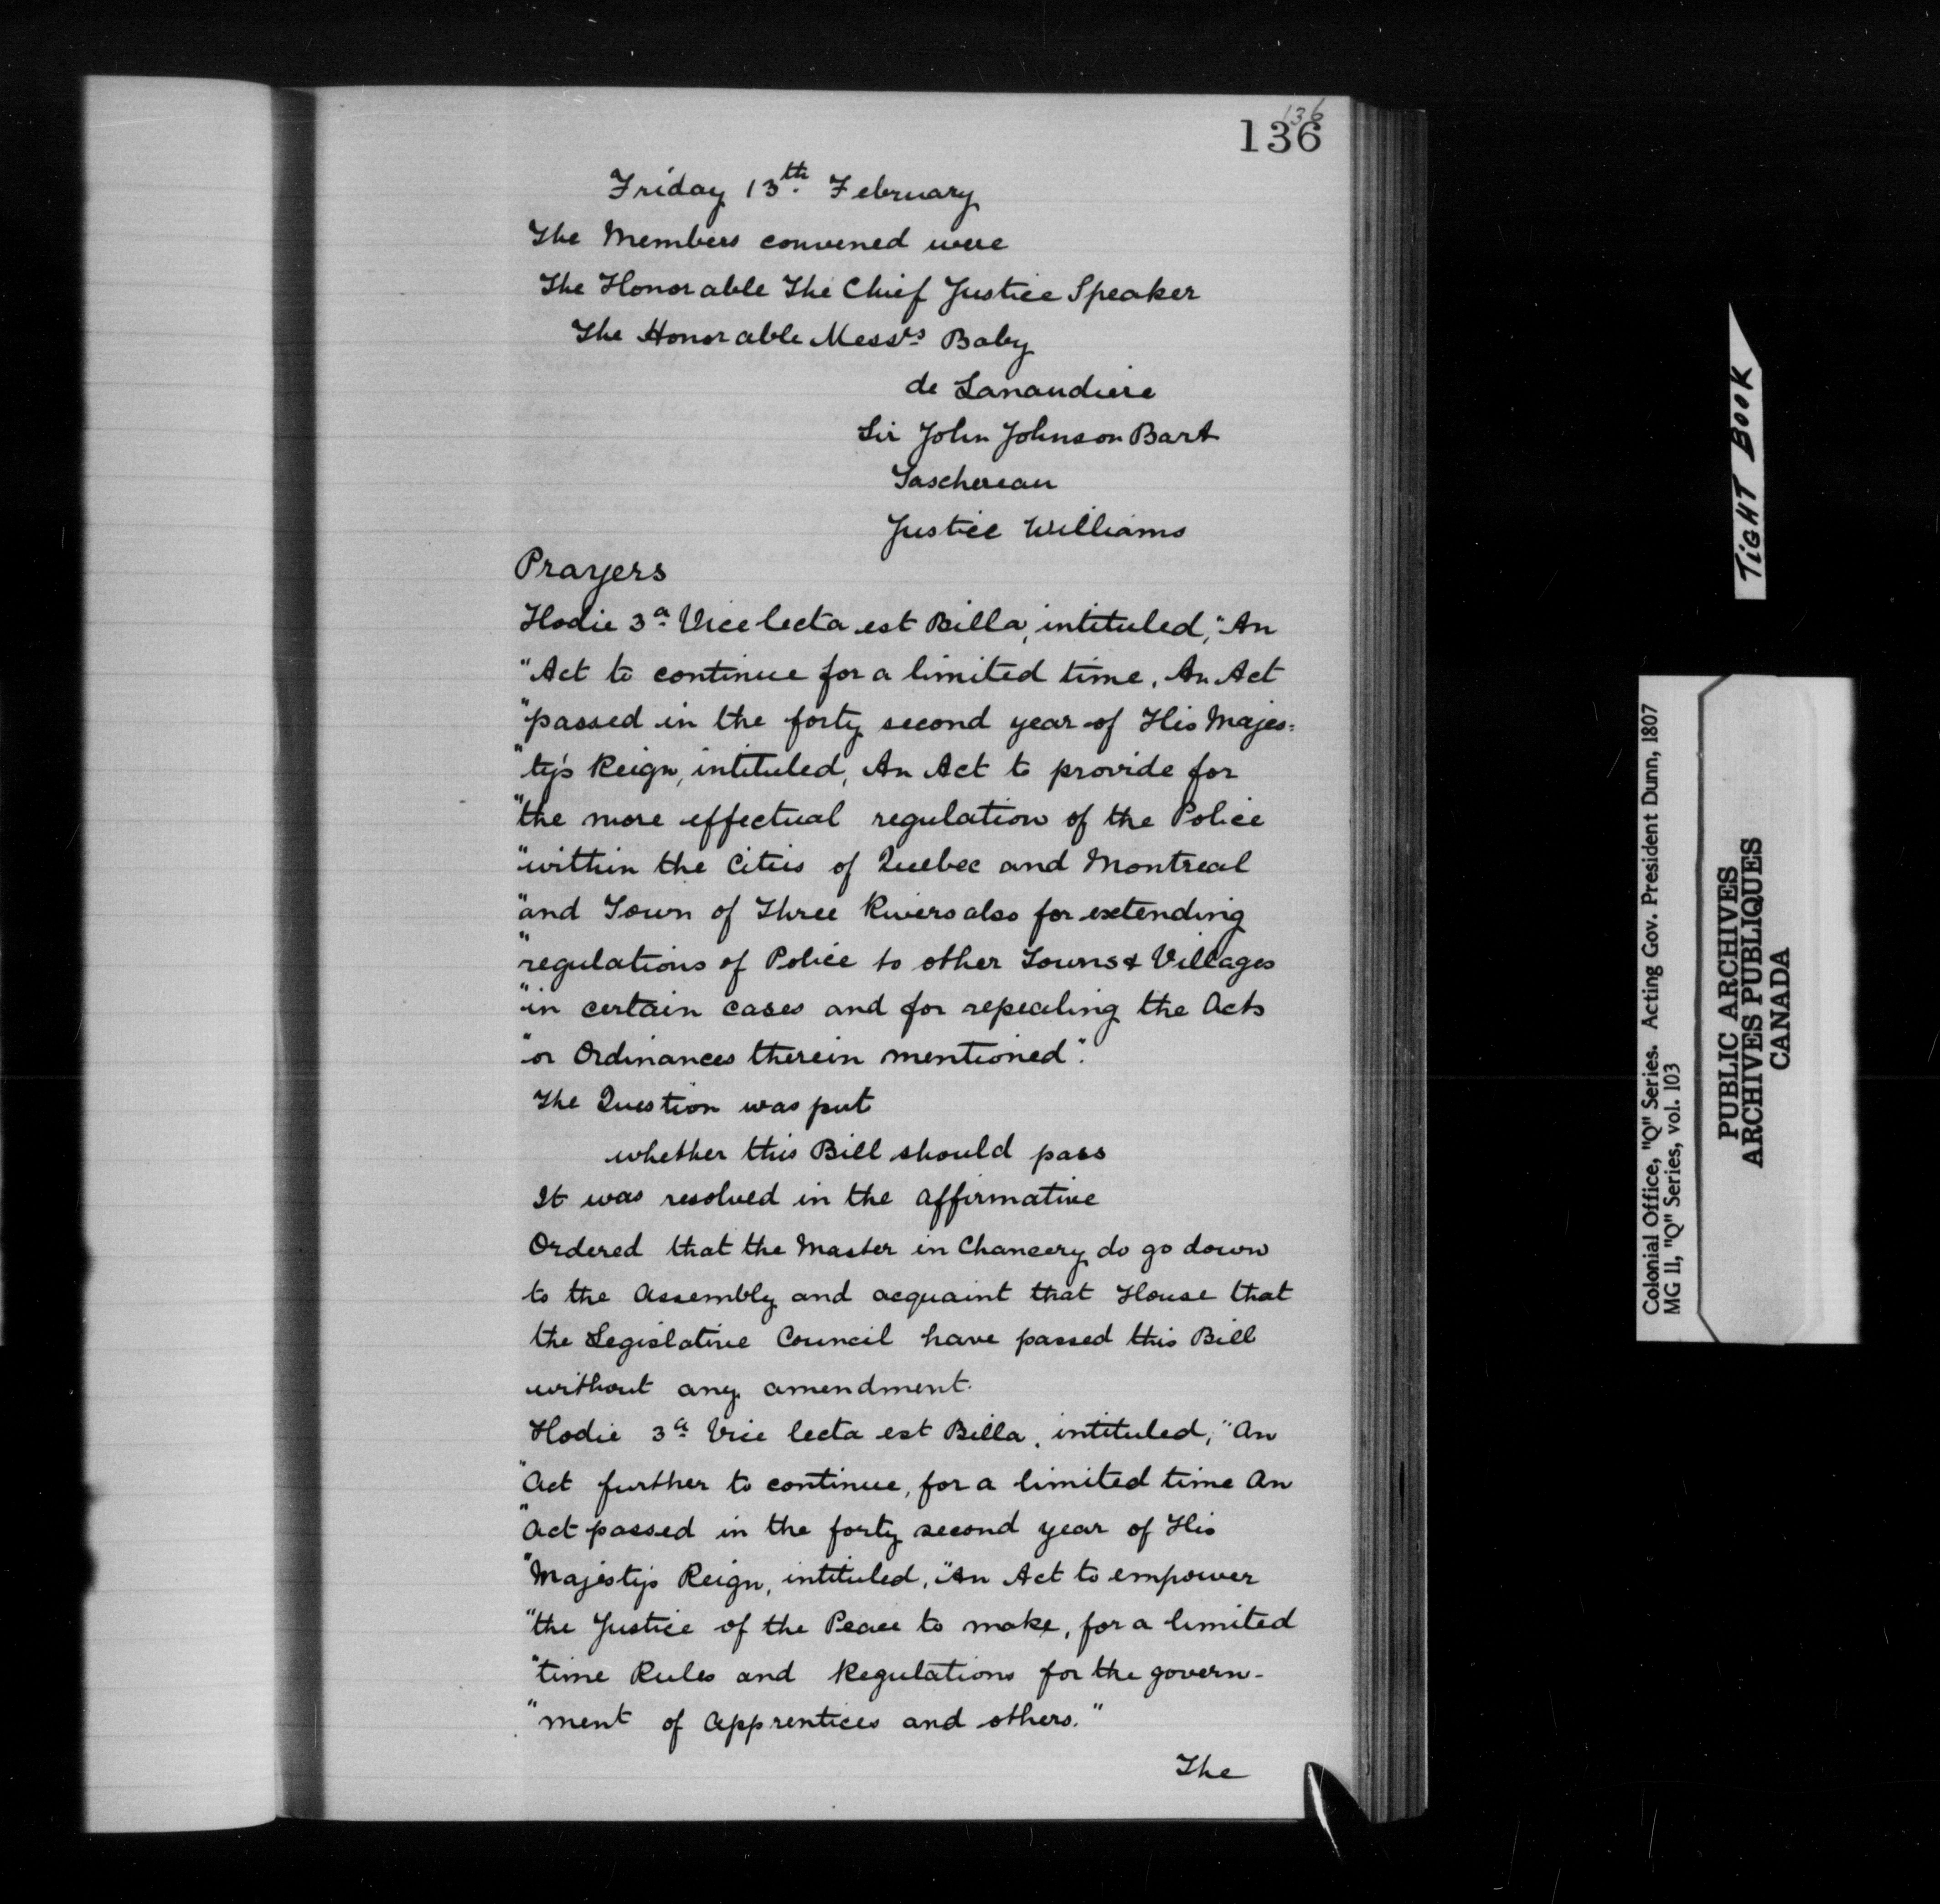 136
136
Friday 13th. February
The Members convened were
The Honorable The Chief Justice Speaker
The Honorable Messrs Baby
de Lanaudiere
Sir John Johnson Bart
Taschereau
Justice Williams
Prayers
Hodie 3a Vice lecta est Billa, intituled, "An
"Act to continue for a limited time, An Act
"passed in the forty second year of His Majes:
"ty's Reign, intituled, An Act to provide for
"the more effectual regulation of the Police
"within the Cities of Quebec and Montreal
"and Town of Three Rivers also for extending
"regulations of Police to other Towns & Villages
"in certain cases and for repealing the Acts
"or Ordinances therein mentioned".
The Question was put
whether this Bill should pass
It was resolved in the affirmative
Ordered that the Master in Chancery do go down
to the Assembly and acquaint that House that
the Legislative Council have passed this Bill
without any amendment.
Hodie 3a Vice lecta est Billa, intituled, "An
"Act further to continue, for a limited time An
"Act passed in the forty second year of His
"Majesty's Reign, intituled, "An Act to empower
"the Justice of the Peace to make, for a limited
"time Rules and Regulations for the govern-
"ment of Apprentices and others."
The
TIGHT BOOK
Colonial Office, "Q" Series. Acting Gov. President Dunn, 1807
MG 11, "Q" Series, vol. 103
PUBLIC ARCHIVES
ARCHIVES PUBLIQUES
CANADA